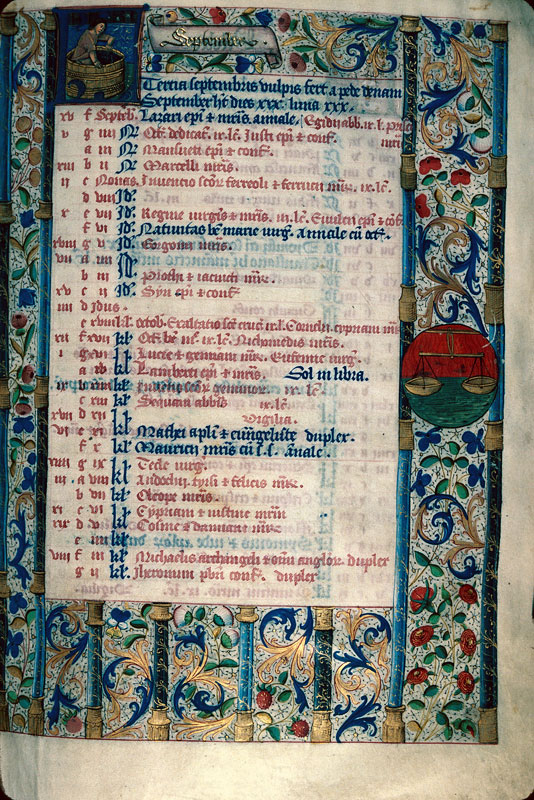 September
Tercia septembris vulpis fert a pede denam
September ht dies xxx. luna xxx.
xv f Septeb. Lazari epi et mris. annale. Egidii abb. ix. lc.
v g iiii N Oct. dedicat. ix. lc. Justi epi et conf.
a iii N Mansueti epi et conf.
xiii b ii N Marcelli mris.
ii c Nonas. Inventio scor ferreoli et ferrucii mr. ix. lc.
d viii Id.
x e vii Id. Regine virgis et mris. ix. lc. Evurcii epi et cof.
f vi Id. Nativitas be marie virg. Annale cu oct.
xviii g v Id. Gorgonii mris.
vii a iiii Id.
b iii Id. Prothi et iacincti mr.
xv c ii Id. Syri epi et conf.
iiii d Idus.
e xviii kl. octob. Exaltatio sce cruc. ix. l. Cornelii. cypriani mr.
xii f xvii kl. Oct. be ix. lc. Nichomedis mris.
i g xvi kl. Lucie et geminiani mr. Eufemie virg.
a xv kl. Lamberti epi et mris. Sol in libra.
ix b xiiii kl. ix. lc.
c xiii kl. Sequani abbis ix. lc.
xvii d xii kl. Vigilia.
vi e xi kl. Mathei apli et evungeliste duplex.
f x kl. Mauricii mris cu s. s. annale.
xiiii g ix kl. Tecle virg.
iii a viii kl. Andochii, tyrsi et felicis mr.
b vii kl. Cleope mris.
xi c vi kl. Cypriani et iustine mrm
xix d v kl. Cosme et damiani mr.
e iiii kl.
viii f iii kl. Michaelis archangeli et oim anglor. duplex
g ii kl. Jheronimi pbri conf. duplex